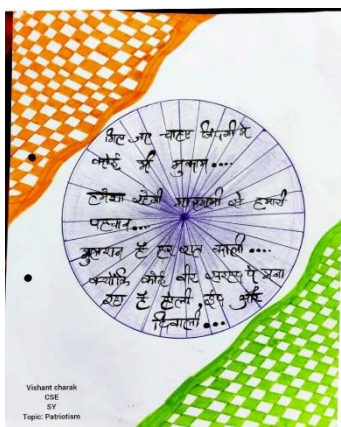 मिल जाए चाहए जिंदगी मे
कोई भी मुकाम....
हमेशा रहेगी मातृभूमी से हमारी
पहचान....
गुलशन है हर रात काली....
क्योंकि कोई वीर सरहद पे मना
रहा है होली, ईद और
दिवाली...
Vishant charak
CSE
SY
Topic: Patriotism